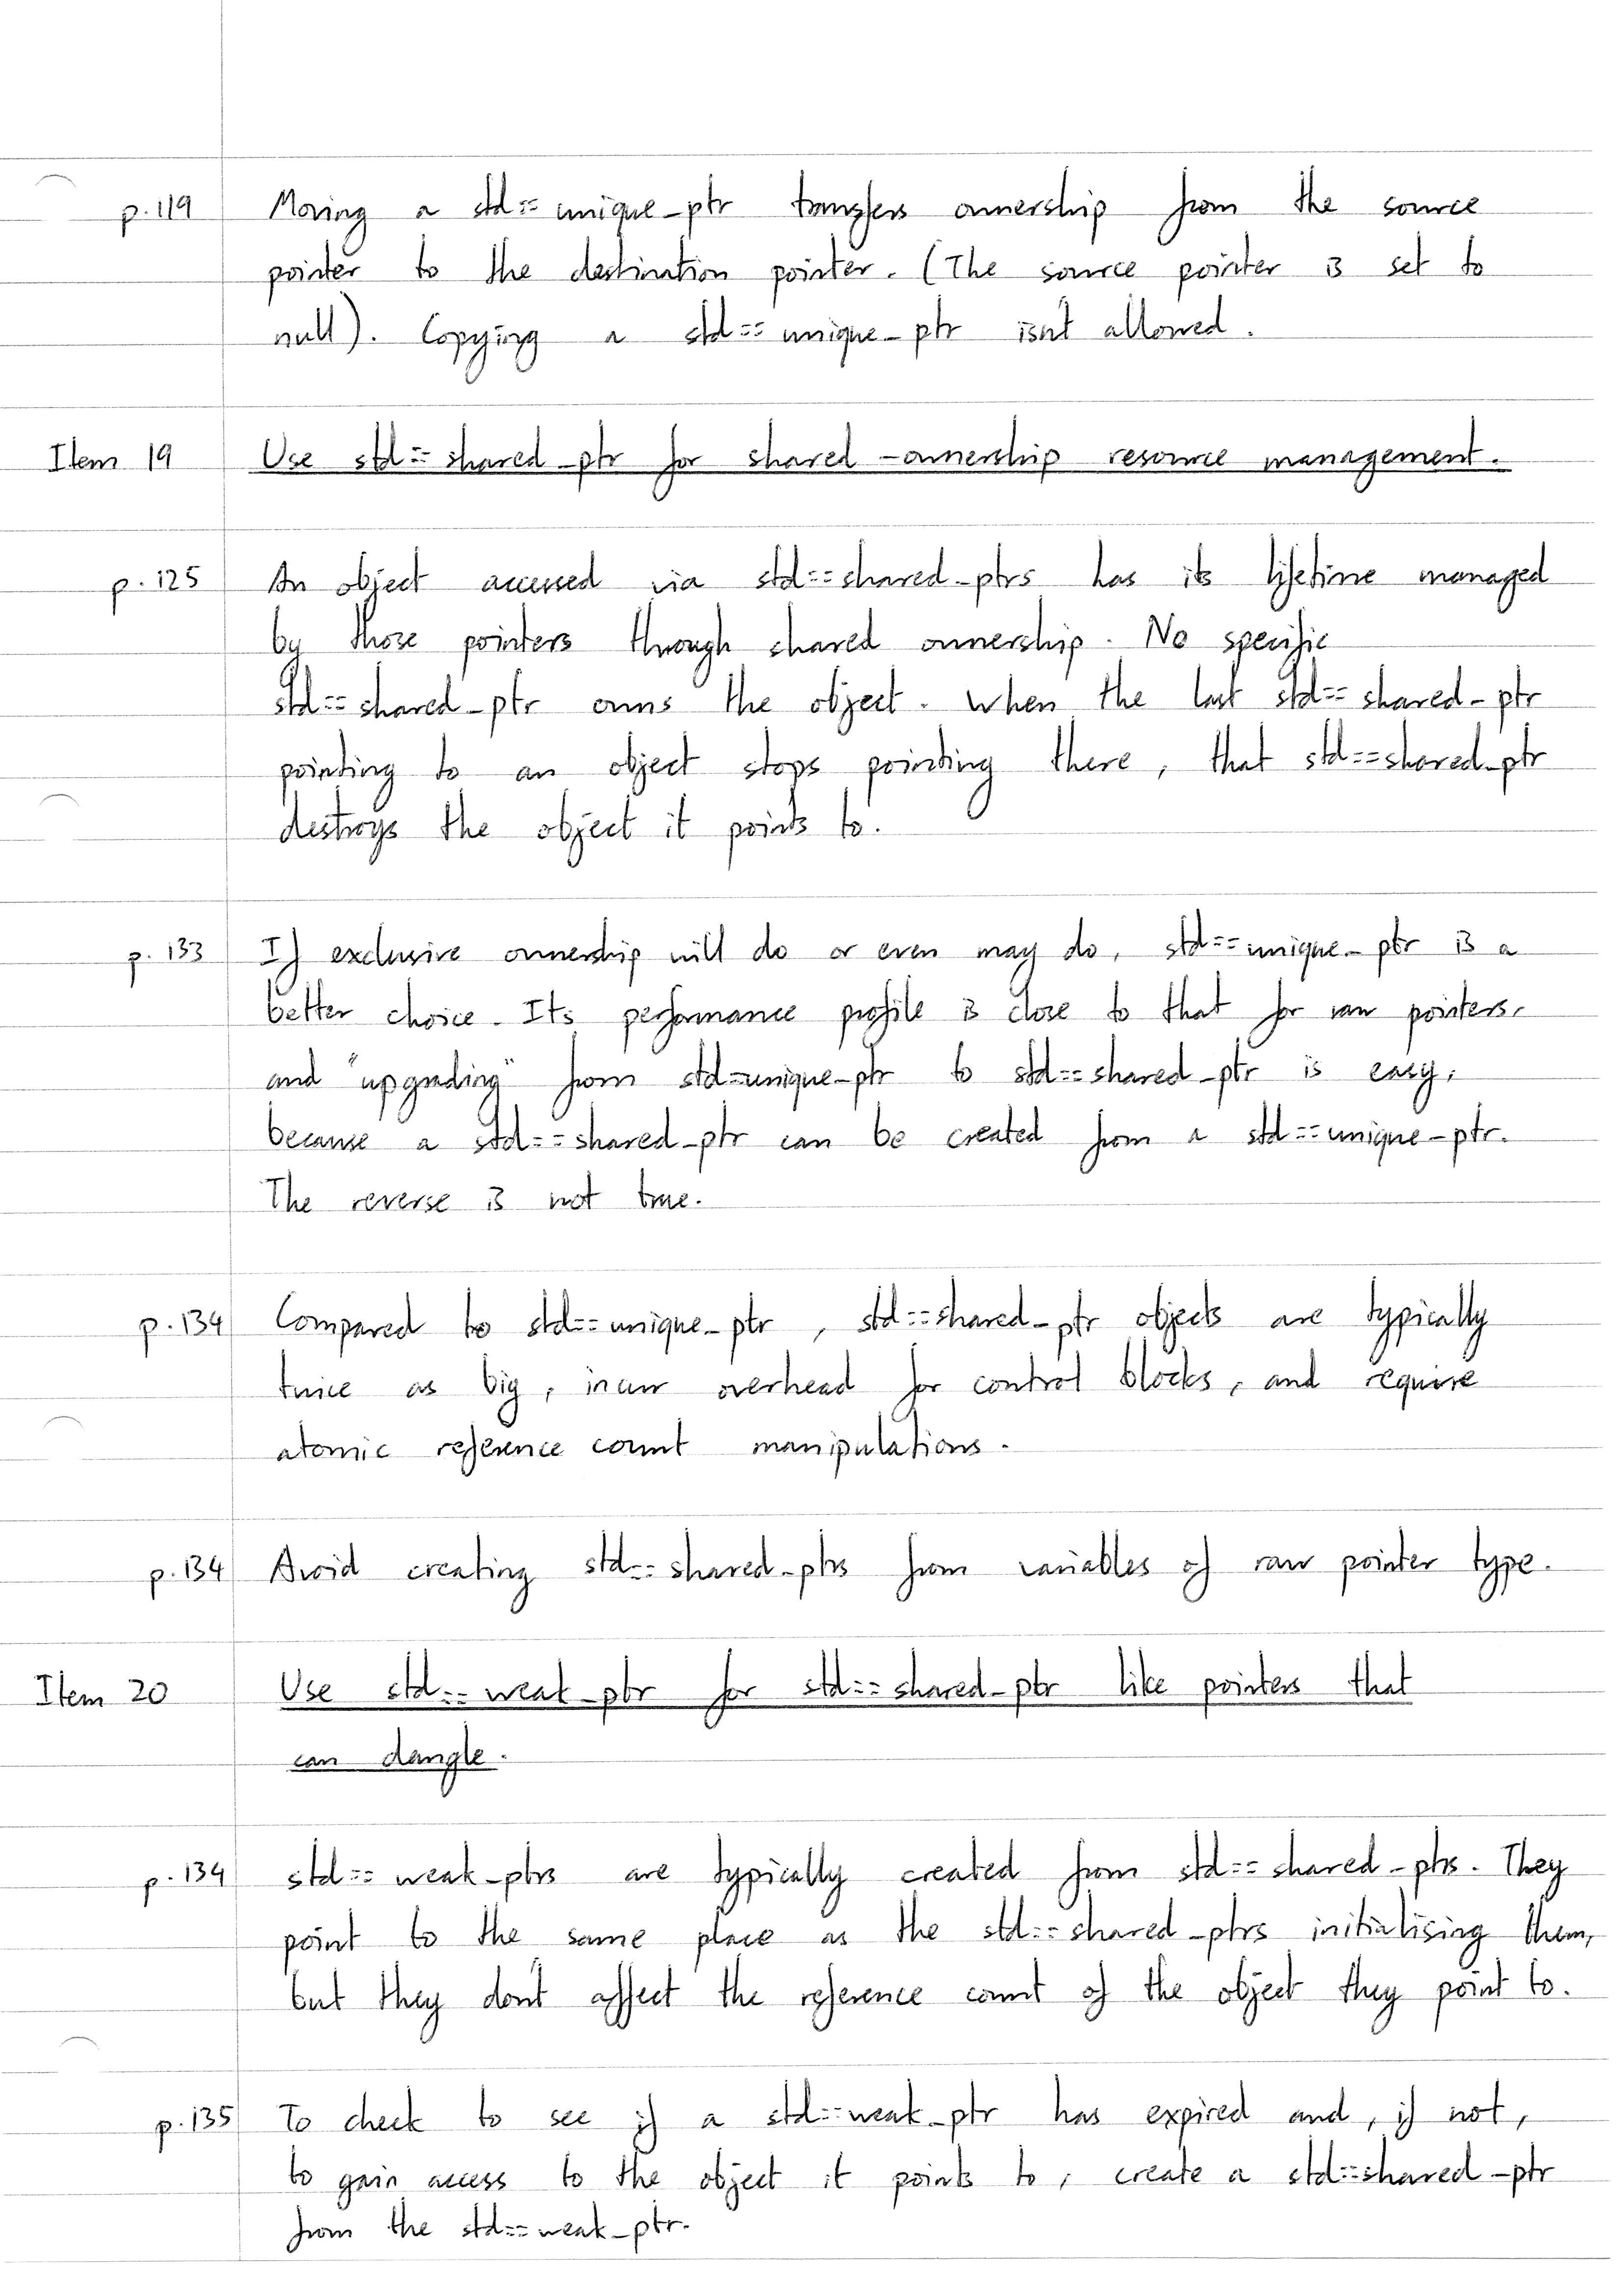 p. 119 Moving a std::unique_ptr transfers ownership from the source
pointer to the destination pointer. (The source pointer is set to
null). Copying a std::unique_ptr isn't allowed.
Item 19 Use std::shared_ptr for shared-ownership resource management.
p. 125 An object accessed via std::shared_ptrs has its lifetime managed
by those pointers through shared ownership. No specific
std::shared_ptr owns the object. When the last std::shared_ptr
pointing to an object stops pointing there, that std::shared_ptr
destroys the object it points to.
p. 133 If exclusive ownership will do or even may do, std::unique_ptr is a
better choice. Its performance profile is close to that for raw pointers,
and "upgrading" from std::unique_ptr to std::shared_ptr is easy,
because a std::shared_ptr can be created from a std::unique_ptr.
The reverse is not true.
p. 134 Compared to std::unique_ptr, std::shared_ptr objects are typically
twice as big, incur overhead for control blocks, and require
atomic reference count manipulations.
p. 134 Avoid creating std::shared_ptrs from variables of raw pointer type.
Item 20 Use std::weak_ptr for std::shared_ptr like pointers that
can dangle.
p. 134 std::weak_ptrs are typically created from std::shared_ptrs. They
point to the same place as the std::shared_ptrs initialising them,
but they don't affect the reference count of the object they point to.
p. 135 To check to see if a std::weak_ptr has expired and, if not,
to gain access to the object it points to, create a std::shared_ptr
from the std::weak_ptr.